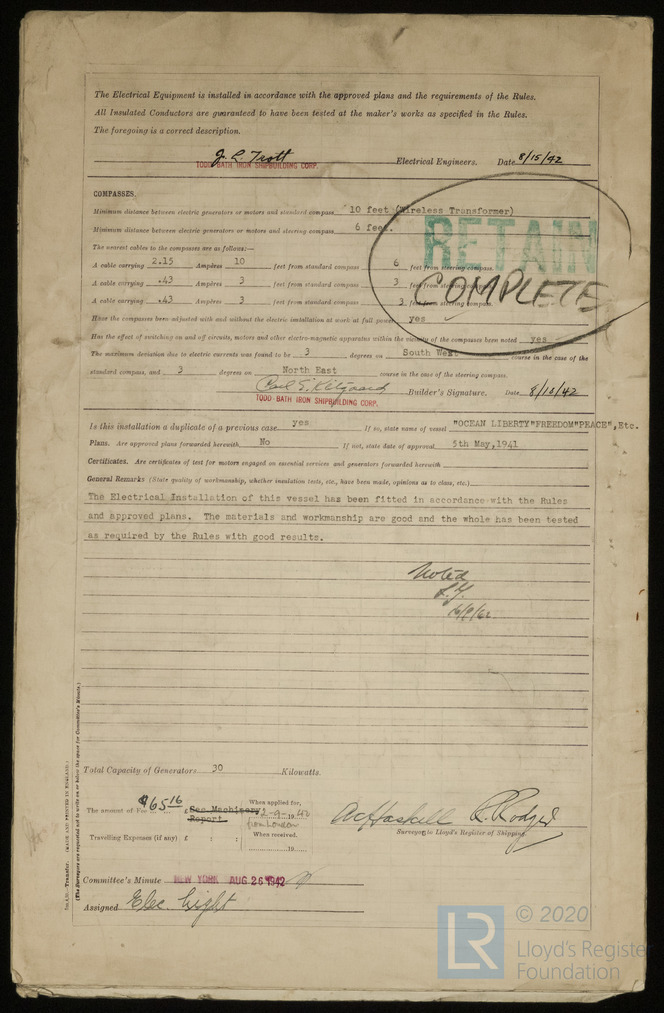 The Electrical Equipment is installed in accordance with the approved plans and the requirements of the Rules.
All Insulated Conductors are guaranteed to have been tested at the maker's works as specified in the Rules.
The foregoing is a correct description.
J. L. Trott Electrical Engineers. Date 8/15/42
TODD-BATH IRON SHIPBUILDING CORP.
COMPASSES.
Minimum distance between electric generators or motors and standard compass 10 feet (Wireless Transformer)
Minimum distance between electric generators or motors and steering compass 6 feet.
RETAIN
COMPLETE
The nearest cables to the compasses are as follows:—
A cable carrying 2.15 Ampères 10 feet from standard compass 6 feet from steering compass.
A cable carrying .43 Ampères 3 feet from standard compass 3 feet from steering compass.
A cable carrying .43 Ampères 3 feet from standard compass 3 feet from steering compass.
Have the compasses been adjusted with and without the electric installation at work at full power yes
Has the effect of switching on and off circuits, motors and other electro-magnetic apparatus within the vicinity of the compasses been noted yes
The maximum deviation due to electric currents was found to be 3 degrees on South West course in the case of the
standard compass, and 3 degrees on North East course in the case of the steering compass.
Builder's Signature. Date 8/18/42
TODD-BATH IRON SHIPBUILDING CORP.
Is this installation a duplicate of a previous case yes If so, state name of vessel "OCEAN LIBERTY"FREEDOM"PEACE",Etc.
Plans. Are approved plans forwarded herewith No If not, state date of approval 5th May,1941
Certificates. Are certificates of test for motors engaged on essential services and generators forwarded herewith
General Remarks (State quality of workmanship, whether insulation tests, etc., have been made, opinions as to class, etc.)
The Electrical Installation of this vessel has been fitted in accordance with the Rules
and approved plans. The materials and workmanship are good and the whole has been tested
as required by the Rules with good results.
Noted
Total Capacity of Generators 30 Kilowatts.
The amount of Fee $65.16 £ See Machinery Report
When applied for, 2-9-1942
from London
Travelling Expenses (if any) £ : :
When received,
19
A C Haskell R. Rodger
Surveyor to Lloyd's Register of Shipping.
Committee's Minute NEW YORK AUG 26 1942
Assigned Elec. Light
(The Surveyors are requested not to write on or below the space for Committee's Minute.)
Transfer. (MADE AND PRINTED IN ENGLAND.)
LR © 2020
Lloyd's Register
Foundation